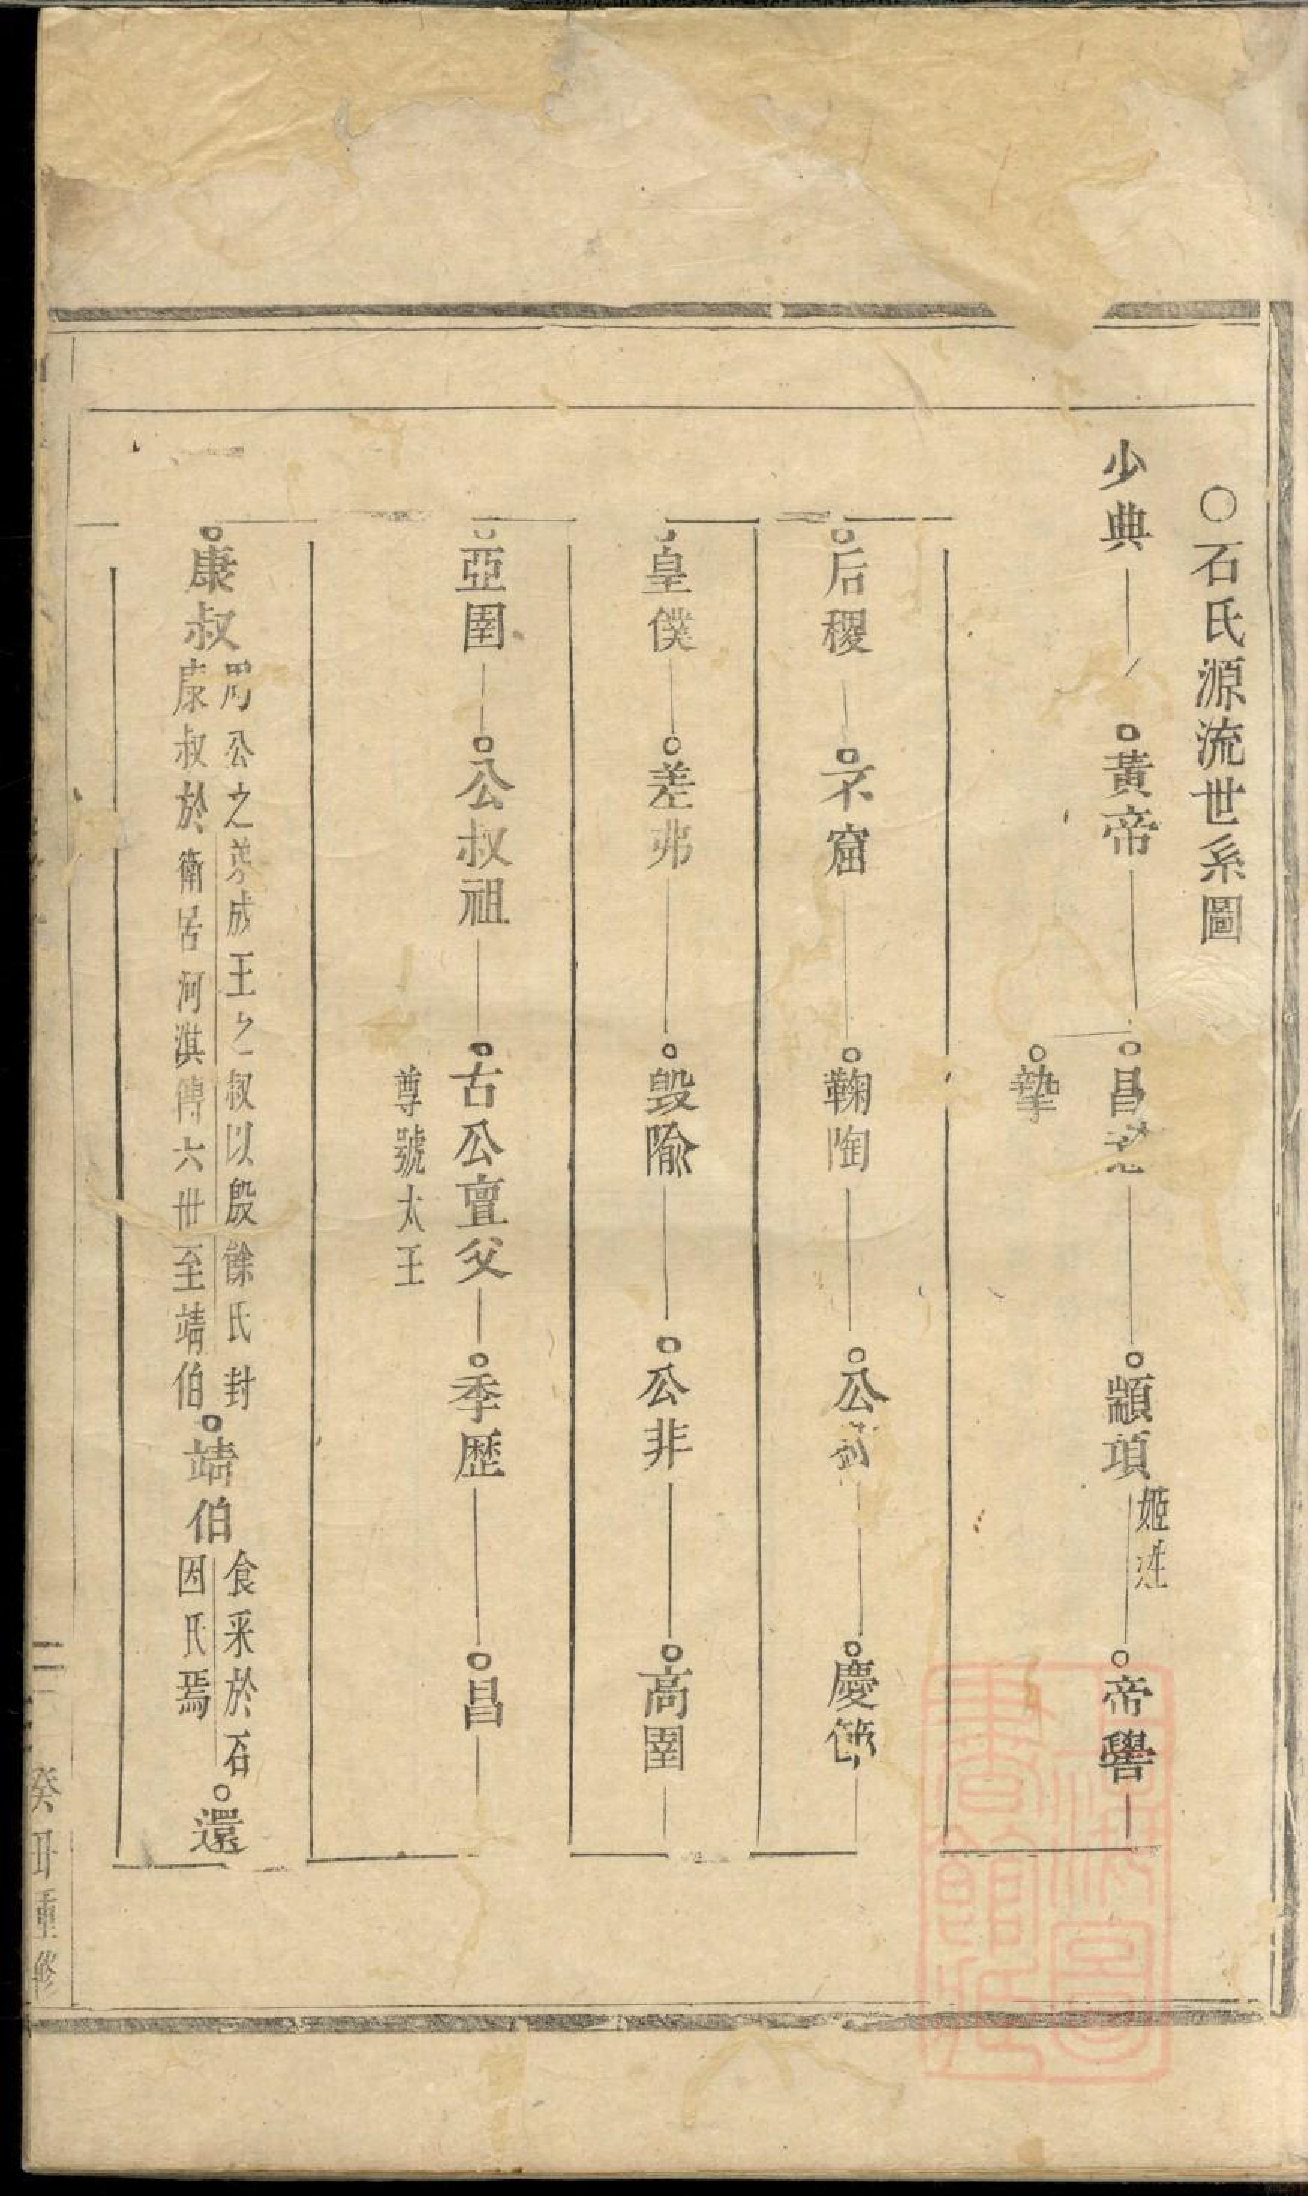 ○石氏源流世系圖
少典
黃帝
昌意
摯
顓項
姬姓
帝嚳
后稷
不窟
鞠陶
公
慶節
皇僕
差弗
毀隃
公非
高圉
亞圉
公叔祖
古公亶父
尊號太王
季歷
昌
康叔
周公之弟成王之叔以殷餘氏封
康叔於衛居河淇傳六世至靖伯
靖伯
食采於石
因氏焉
還
二
癸丑重修